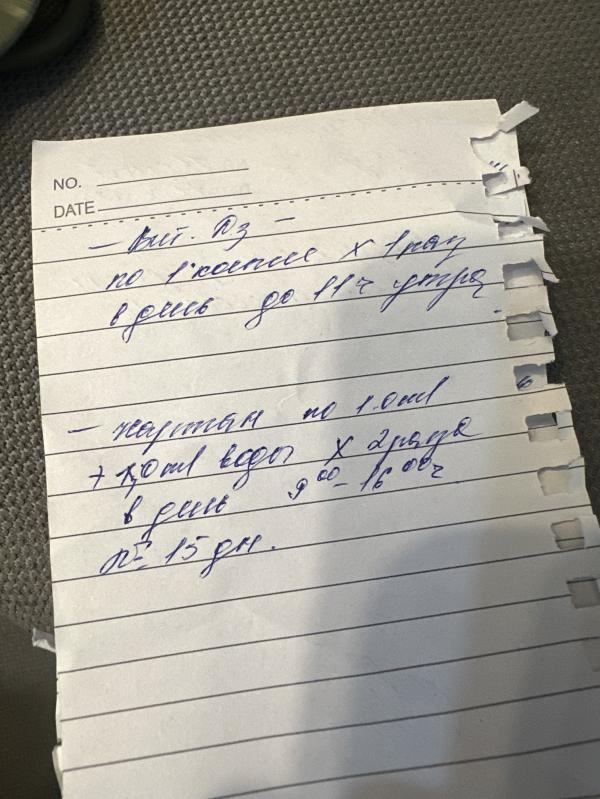 NO.
DATE
- Вит. Д3 -
по 1 капле х 1 раз
в день до 11 ч утра
- Картан по 1.0 ml
+ 1,0 ml воды х 2 раза
в день 9 00 - 16 00 ч
№ 15 дн.